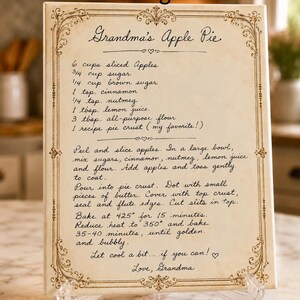 Grandma's Apple Pie
6 cups sliced Apples
3/4 cup sugar
1/4 cup brown sugar
1 tsp. cinnamon
1/4 tsp. nutmeg
1 tbsp. lemon juice
3 tbsp. all-purpose flour
1 recipe pie crust (my favorite!)
Peel and slice apples. In a large bowl,
mix sugars, cinnamon, nutmeg, lemon juice
and flour. Add apples and toss gently
to coat.
Pour into pie crust. Dot with small
pieces of butter. Cover with top crust,
seal and flute edges. Cut slits in top.
Bake at 425° for 15 minutes.
Reduce heat to 350° and bake
35-40 minutes, until golden
and bubbly.
Let cool a bit... if you can! ♡
Love, Grandma